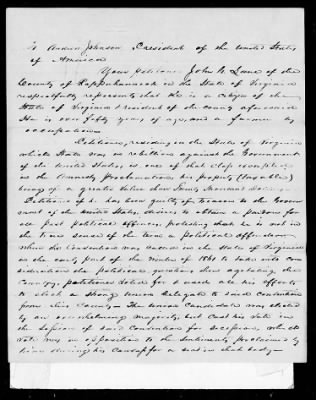 To Andrew Johnson President of the United States
of America
Your petitioner John R. Lane of the
County of Rappahannock in the State of Virginia
respectfully represents that he is a citizen of the
State of Virginia & resident of the county aforesaid
He is over fifty years of age, and a farmer by
occupation.
Petitioner, residing in the State of Virginia
which State was in rebellion against the Government
of the United States, is one of that class excepted
in the Amnesty Proclamation, his property (taxable)
being of a greater value than Twenty thousand dollars.
Petitioner if he has been guilty of treason to the Govern
ment of the United States, desires to obtain a pardon for
all past political offences, protesting that he is not in
the true sense of the term a political offender.
When the Convention was called in the State of Virginia
in the early part of the winter of 1861 to take into con
sideration the political questions then agitating the
Country, petitioner voted for & used all his efforts
to elect a strong Union delegate to said convention
from this County. The Union Candidate was elected
by an overwhelming majority, but cast his vote in
the Session of said Convention for Secession, which
vote was in opposition to the sentiments proclaimed by
him during his canvass for a seat in that body and